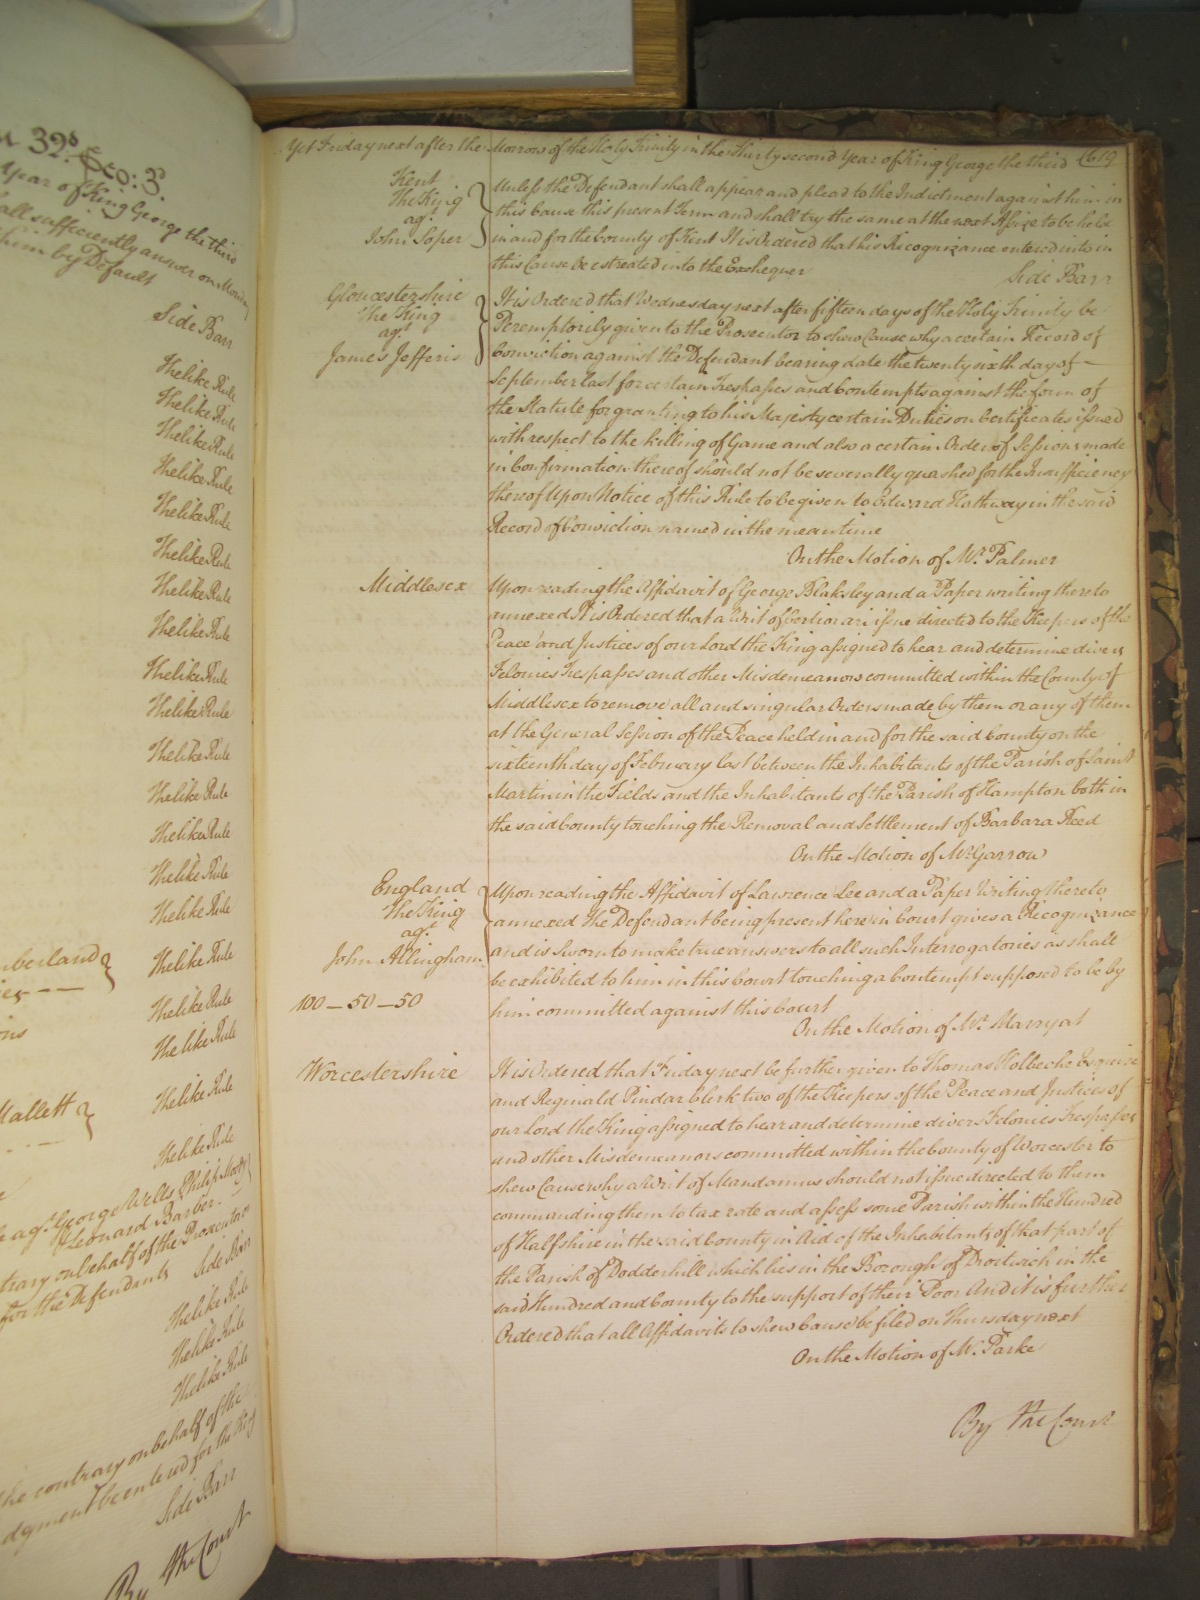 m 32d. Geo: 3.
Year of King George the third
all sufficiently answer on Monday
him by Default
Side Barr
The like Rule
The like Rule
The like Rule
The like Rule
The like Rule
The like Rule
The like Rule
The like Rule
The like Rule
The like Rule
The like Rule
The like Rule
The like Rule
The like Rule
The like Rule
berland
The like Rule
The like Rule
The like Rule
Mallett
The like Rule
The like Rule
agt. George Wells Philip
Leonard Barber
trary on behalf of the Prosecutor
for the Defendants Side Barr
The like Rule
The like Rule
The like Rule
the contrary on behalf of the
dgment be entered for the King
Side Barr
By the Court
Yet Friday next after the Morrow of the Holy Trinity in the Thirty second Year of King George the third (619
Kent
The King
agt.
John Soper
Unless the Defendant shall appear and plead to the Indictment against him in
this Cause this present Term and shall try the same at the next Assize to be held
in and for the County of Kent It is Ordered that his Recognizance entered into in
this Cause be estreated into the Exchequer
Side Barr
Gloucestershire
The King
agt.
James Jefferis
It is Ordered that Wednesday next after fifteen days of the Holy Trinity be
Peremptorily given to the Prosecutor to shew Cause why a certain Record of
Conviction against the Defendant bearing date the twenty sixth day of
September last for certain Trespasses and Contempts against the form of
the Statute for granting to his Majesty certain Duties on Certificates issued
with respect to the killing of Game and also a certain Order of Sessions made
in Confirmation thereof should not be severally quashed for the Insufficiency
thereof Upon Notice of this Rule to be given to Edward Hathway in the said
Record of Conviction named in the mean time
On the Motion of Mr. Palmer
Middlesex
Upon reading the Affidavit of George Blaksley and a Paper writing thereto
annexed It is Ordered that a Writ of Certiorari issue directed to the Keepers of the
Peace and Justices of our Lord the King assigned to hear and determine divers
Felonies Trespasses and other Misdemeanors committed within the County of
Middlesex to remove all and singular Orders made by them or any of them
at the General Session of the Peace held in and for the said County on the
sixteenth day of February last between the Inhabitants of the Parish of Saint
Martin in the Fields and the Inhabitants of the Parish of Hampton both in
the said County touching the Removal and Settlement of Barbara Reed
On the Motion of Mr. Garrow
England
The King
agt.
John Allingham
100 – 50 – 50
Upon reading the Affidavit of Lawrence Lee and a Paper Writing thereto
annexed The Defendant being present here in Court gives a Recognizance
and is sworn to make true answers to all such Interrogatories as shall
be exhibited to him in this Court touching a Contempt supposed to be by
him committed against this Court
On the Motion of Mr. Marryat
Worcestershire
It is Ordered that Friday next be further given to Thomas Holbeche Esquire
and Reginald Pindar Clerk two of the Keepers of the Peace and Justices of
our Lord the King assigned to hear and determine divers Felonies Trespasses
and other Misdemeanors committed within the County of Worcester to
shew Cause why a Writ of Mandamus should not issue directed to them
commanding them to tax rate and assess some Parish within the Hundred
of Halfshire in the said County in Aid of the Inhabitants of that part of
the Parish of Dodderhill which lies in the Borough of Droitwich in the
said Hundred and County to the support of their Poor And it is further
Ordered that all Affidavits to shew Cause be filed on Thursday next
On the Motion of Mr. Parke
By the Court